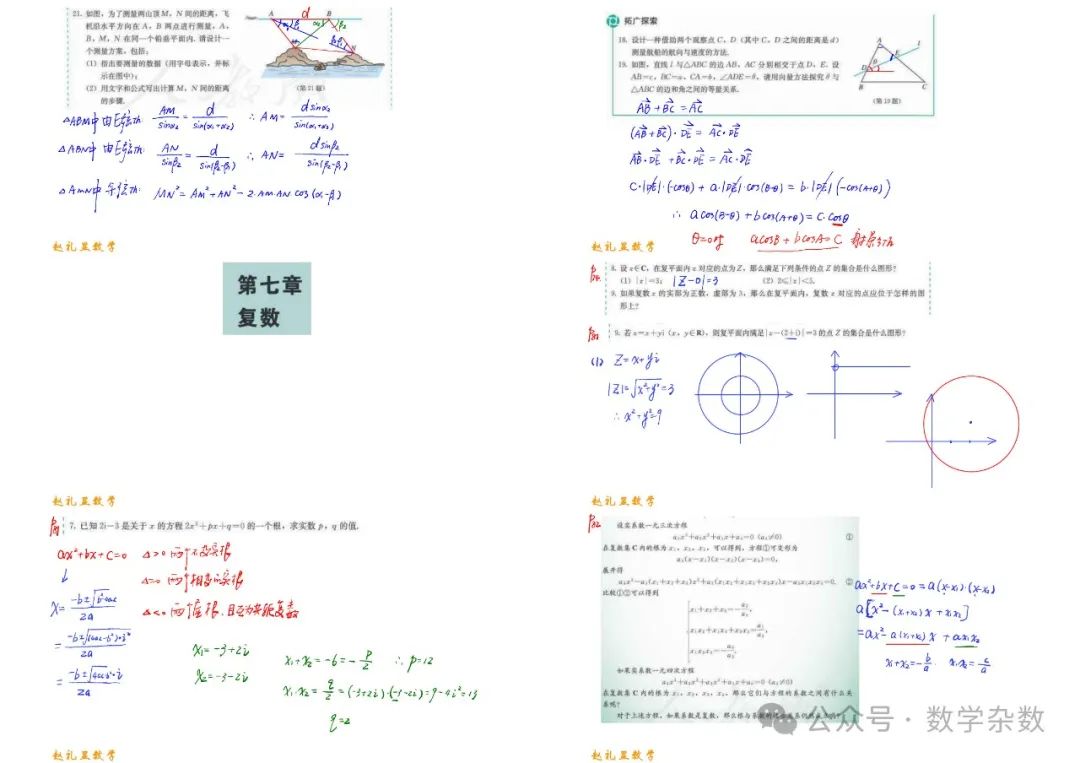 23. 如图,为了测量两山顶 M,N 间的距离,飞
机沿水平方向在 A,B 两点进行测量,A,
B,M,N 在同一个铅垂平面内. 请设计一
个测量方案,包括:
(1) 指出要测量的数据(用字母表示,并标
示在图中);
(2) 用文字和公式写出计算 M,N 间的距离
的步骤.
A d B
(第 21 题)
△ABM中 由正弦定: AM/sinα₂ = d/sin(α₁+α₂) ∴ AM= dsinα₂/sin(α₁+α₂)
△ABN中 由正弦定: AN/sinβ₂ = d/sin(β₂-β₁) ∴ AN= dsinβ₂/sin(β₂-β₁)
△AMN中 余弦定: MN²=AM²+AN²-2·AM·AN·cos(α₁-β₁)
赵礼显数学
拓广探索
18. 设计一种借助两个观察点 C,D(其中 C,D 之间的距离是 d)
测量航船的航向与速度的方法.
19. 如图,直线 l 与△ABC 的边 AB,AC 分别相交于点 D,E. 设
AB=c,BC=a,CA=b,∠ADE=θ,请用向量方法探究 θ 与
△ABC 的边和角之间的等量关系.
A l E D B C
(第 19 题)
AB+BC=AC
(AB+BC)·DE=AC·DE
AB·DE+BC·DE=AC·DE
c·|DE|·(-cosθ)+a·|DE|·cos(B-θ)=b·|DE|(-cos(A+θ))
∴ acos(B-θ)+bcos(A+θ)=c·cosθ
θ=0时 acosB+bcosA=c
赵礼显数学
第七章
复数
赵礼显数学
8. 设 z∈C,在复平面内 z 对应的点为 Z,那么满足下列条件的点 Z 的集合是什么图形?
(1) |z|=3; |Z-0|=3 (2) 2≤|z|<5.
9. 如果复数 z 的实部为正数,虚部为 3,那么在复平面内,复数 z 对应的点应位于怎样的图
形上?
9. 若 z=x+yi (x,y∈R),则复平面内满足|z-(2+i)|=3 的点 Z 的集合是什么图形?
(1) Z=x+yi
|Z|=√x²+y²=3
∴ x²+y²=9
赵礼显数学
7. 已知 2i-3 是关于 x 的方程 2x²+px+q=0 的一个根,求实数 p,q 的值.
ax²+bx+c=0 △>0 两个不等实根
△=0 两个相等的实根
△<0 两个虚根,且互为共轭复数
x= -b±√b²-4ac/2a
= -b±√(4ac-b²)·i²/2a
= -b±√4ac-b²·i/2a
x₁=-3+2i
x₂=-3-2i
x₁+x₂=-6=-p/2 ∴ p=12
x₁·x₂=q/2=(-3+2i)·(-3-2i)=9-4i²=13
赵礼显数学
设实系数一元三次方程
a₃x³+a₂x²+a₁x+a₀=0 (a₃≠0) ①
在复数集 C 内的根为 x₁,x₂,x₃,可以得到,方程①可变形为
a₃(x-x₁)(x-x₂)(x-x₃)=0,
展开得
a₃x³-a₃(x₁+x₂+x₃)x²+a₃(x₁x₂+x₁x₃+x₂x₃)x-a₃x₁x₂x₃=0. ②
比较①②可以得到
x₁+x₂+x₃=-a₂/a₃,
x₁x₂+x₁x₃+x₂x₃=a₁/a₃,
x₁x₂x₃=-a₀/a₃.
如果实系数一元四次方程
a₄x⁴+a₃x³+a₂x²+a₁x+a₀=0 (a₄≠0)
在复数集 C 内的根为 x₁,x₂,x₃,x₄,那么它们与方程的系数之间有什么关
系呢?
ax²+bx+c=0=a(x-x₁)·(x-x₂)
a[x²-(x₁+x₂)x+x₁x₂]
=ax²-a(x₁+x₂)x+ax₁x₂
x₁+x₂=-b/a x₁x₂=c/a
公众号·数学杂数
赵礼显数学